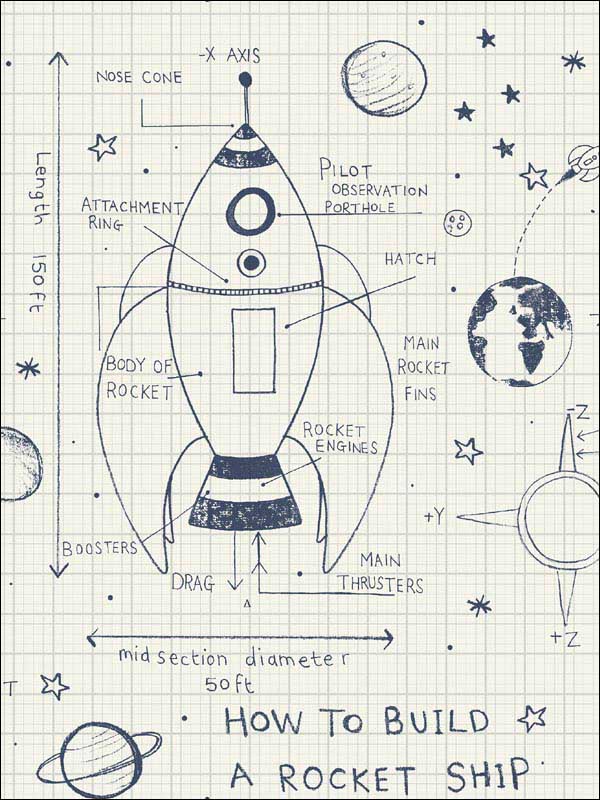 -X AXIS
NOSE CONE
PILOT
OBSERVATION
PORTHOLE
ATTACHMENT
RING
Length 150ft
HATCH
BODY OF
ROCKET
MAIN
ROCKET
FINS
ROCKET
ENGINES
-Z
+Y
BOOSTERS
DRAG
MAIN
THRUSTERS
+Z
midsection diameter
50ft
T
HOW TO BUILD
A ROCKET SHIP